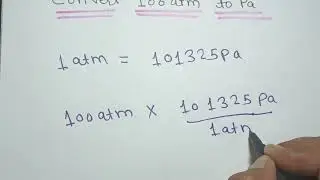 Convert 100 atm to Pa
1 atm = 101325 Pa
100 atm × 101325 Pa
1 atm